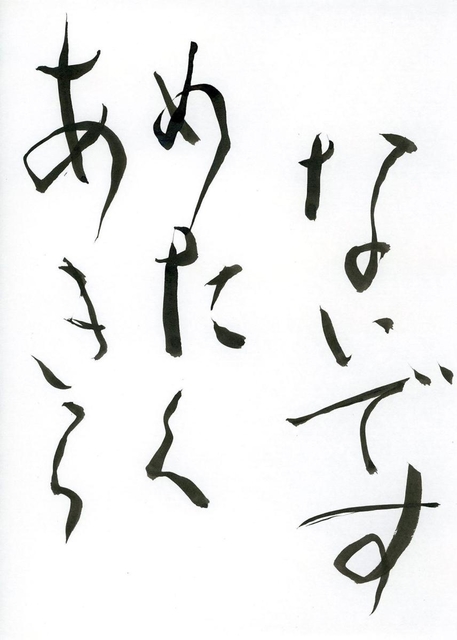 あきら
めたく
ないです